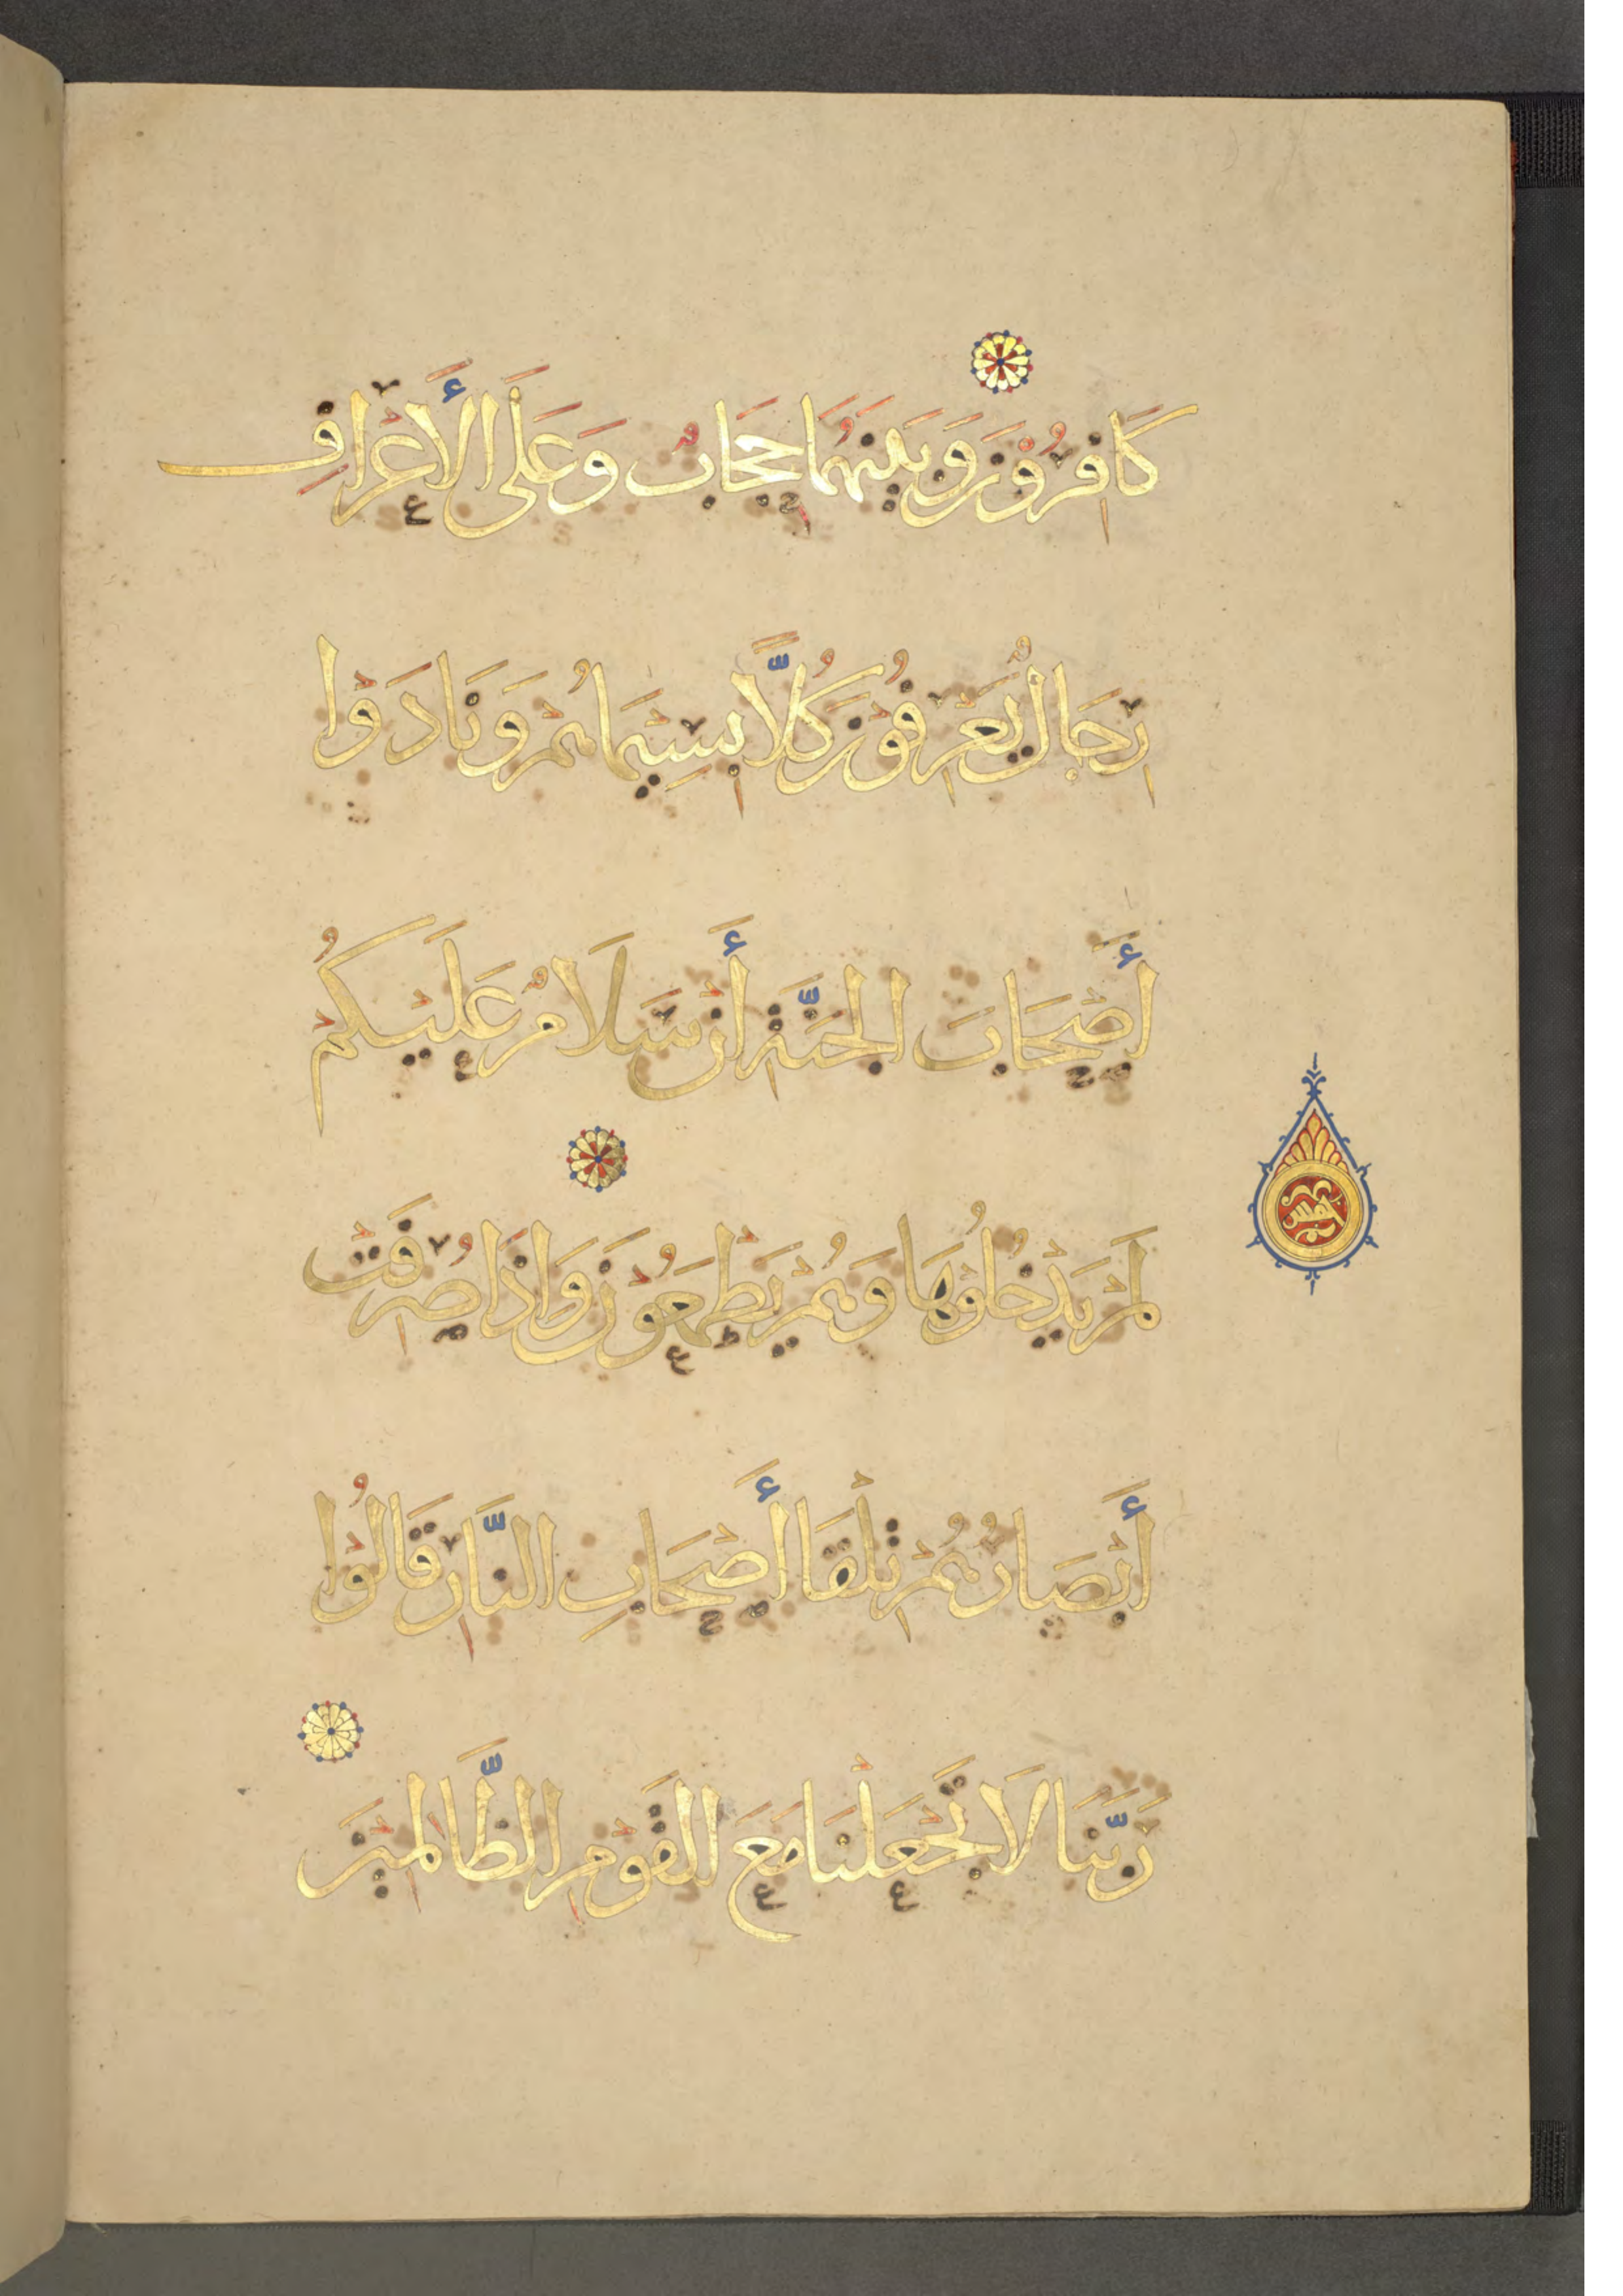 كَافِرُوْنَ وَبَيْنَهُمَا حِجَابٌ وَعَلَى الأَعْرَافِ
رِجَالٌ يَعْرِفُوْنَ كُلًّا بِسِيْمَاهُمْ وَنَادَوْا
أَصْحَابَ الجَنَّةِ أَنْ سَلَامٌ عَلَيْكُمْ
لَمْ يَدْخُلُوْهَا وَهُمْ يَطْمَعُوْنَ وَاِذَا صُرِفَتْ
أَبْصَارُهُمْ تِلْقَا أَصْحَابِ النَّارِ قَالُوْا
رَبَّنَا لَا تَجْعَلْنَا مَعَ القَوْمِ الظَّالِمِيْنَ